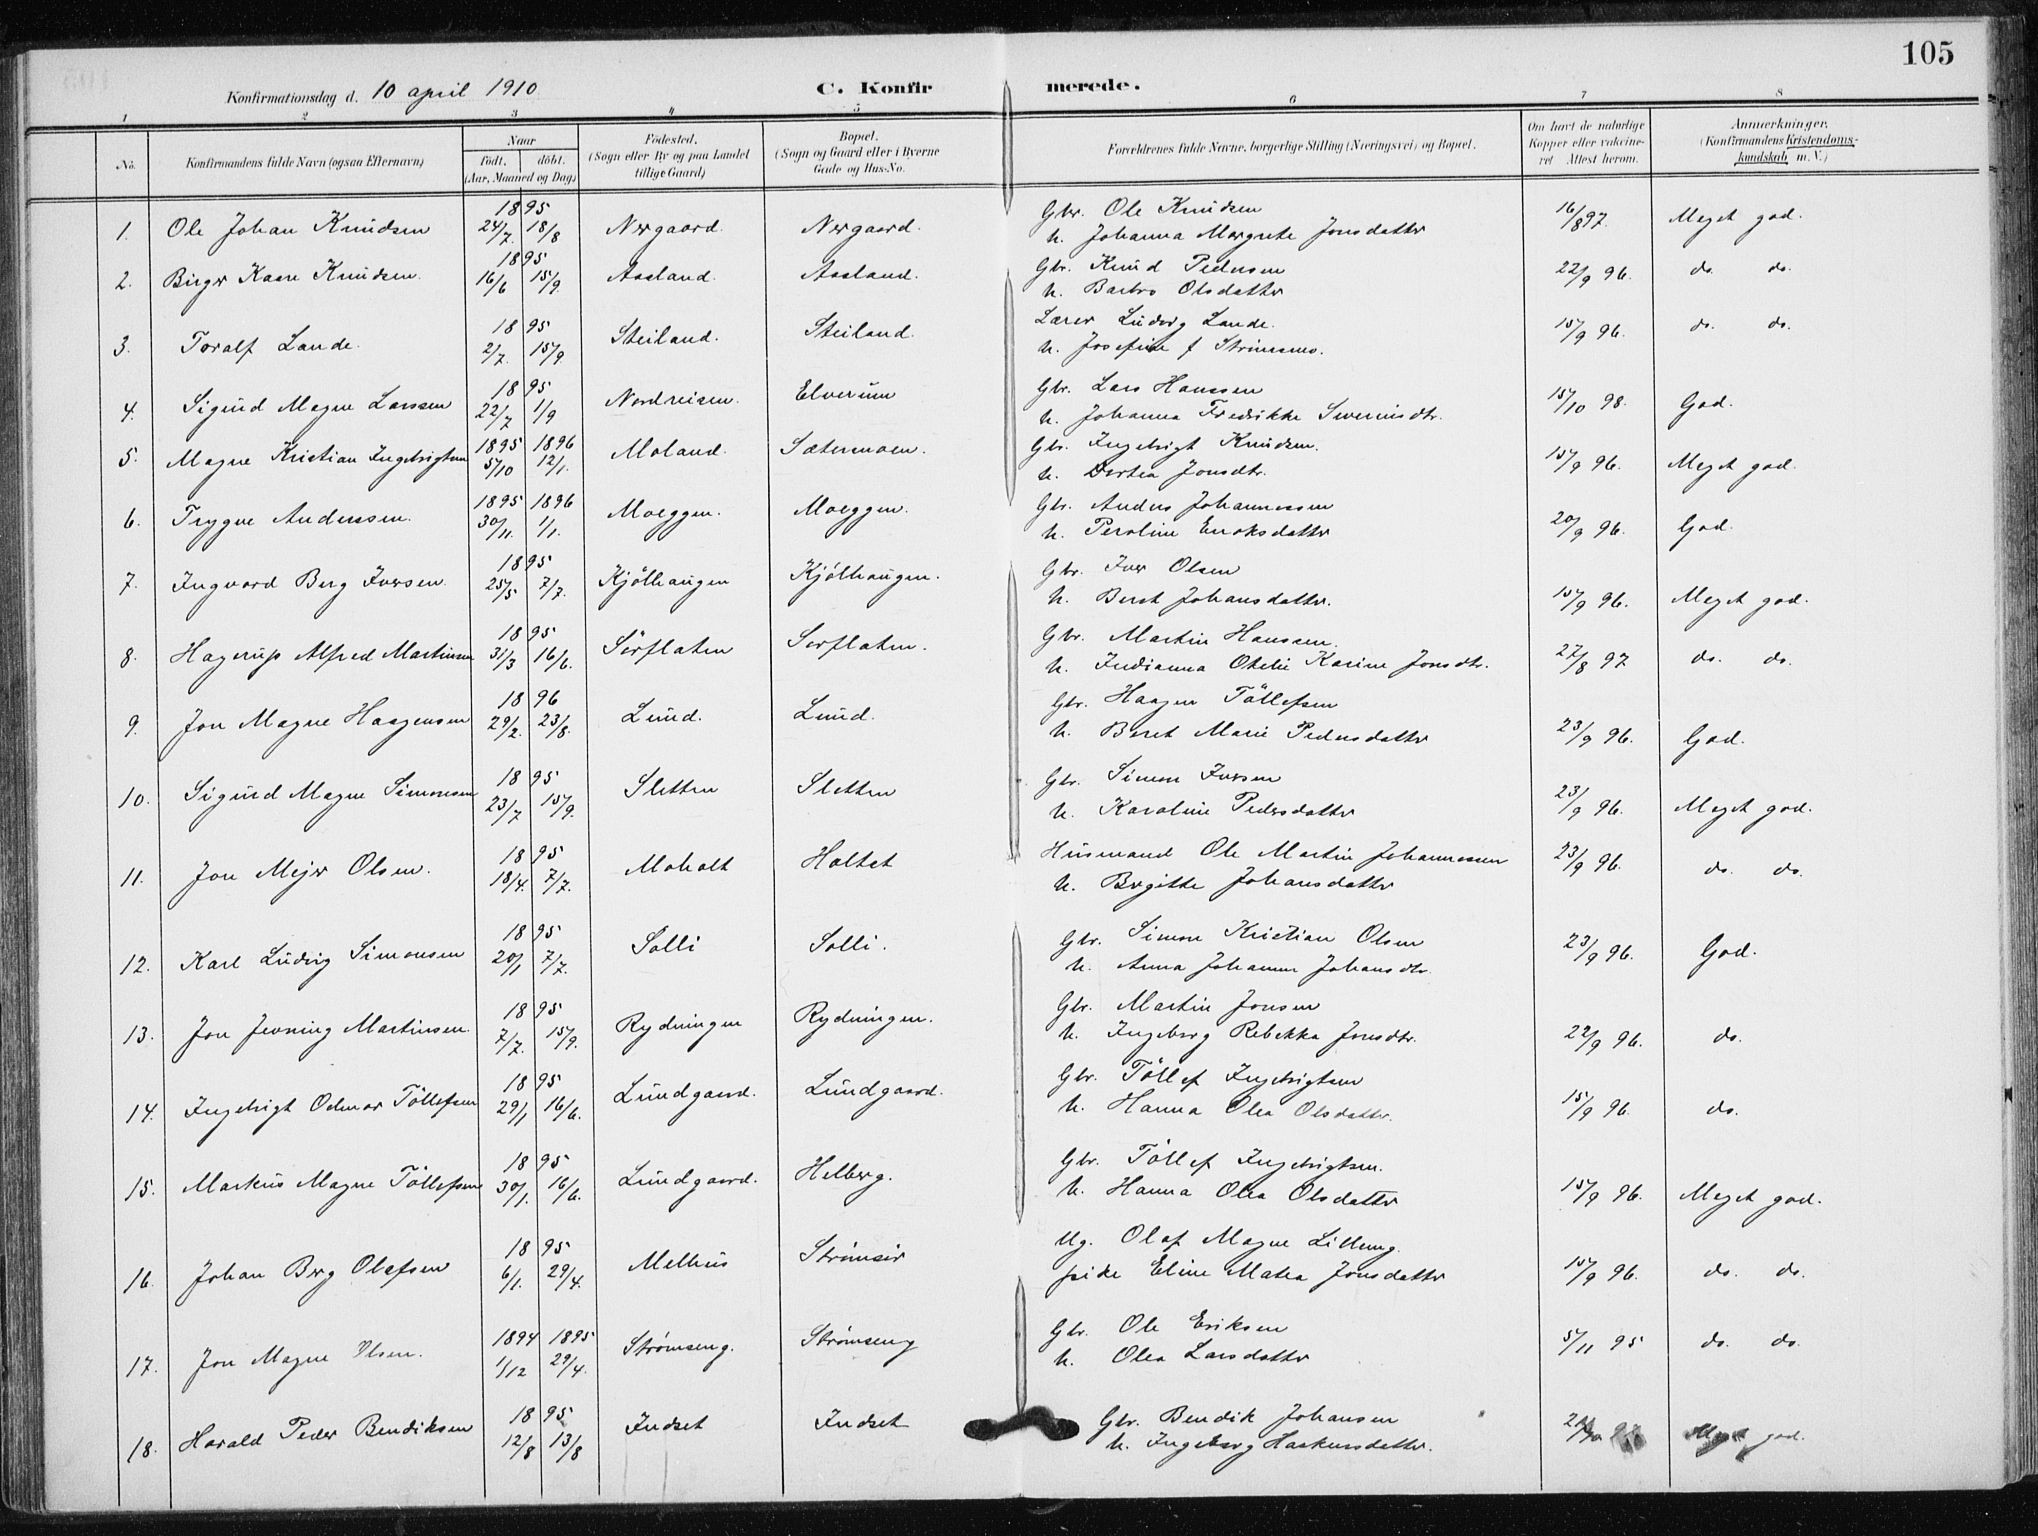 105
Konfirmationsdag d. 10 april 1910
C. Konfirmerede.
1 2 3 4 5 6 7 8
No.
Konfirmandens fulde Navn (ogsaa Efternavn)
Naar
født. døbt.
(Aar, Maaned og Dag)
Fødested.
(Sogn eller By og paa Landet
tillige Gaard)
Bopæl.
(Sogn og Gaard eller i Byerne
Gade og Hus-No.
Forældrenes fulde Navne, borgerlige Stilling (Næringsvei) og Bopæl.
Om havt de naturlige
Kopper eller vakcine-
ret Attest herom.
Anmerkninger.
(Konfirmandens Kristendoms-
kundskab m. V.)
1. Ole Johan Knudsen 1895 24/7. 18/8 Nergaard. Nergaard. Gbr. Ole Knudsen 16/8 97. Meget god.
h. Johanna Margrete Jonsdatter
2. Birger Kaare Knudsen. 1895 16/6 15/9. Aasland. Aasland. Gbr. Knud Pedersen 22/9 96. do. do.
h. Barbro Olsdatter
3. Toralf Lande. 1895 2/7. 15/9 Steiland. Steiland. Lærer Ludvig Lande. 15/9 96. do. do.
h. Josefine f Strømsmo.
4. Sigurd Magne Larssen 1895 22/7 1/9 Nordreisen. Elverum Gbr. Lars Hanssen 15/10 98. God.
h. Johanna Fredrikke Sverinsdtr.
5. Magne Kristian Ingebrigtsen 1895 5/10 1896 12/1. Moland. Sætermoen. Gbr. Ingebrigt Knudsen. 15/9 96. Meget god.
h. Dortea Jonsdtr.
6. Trygve Anderssen. 1895 30/11. 1896 1/1. Moeggen. Moeggen. Gbr. Anders Johannessen 20/9 96. God.
h. Peroline Enoksdatter
7. Ingvard Berg Iversen. 1895 25/5 7/7. Kjölhaugen Kjölhaugen. Gbr. Iver Olsen
h. Beret Johansdatter. 15/9 96. Meget god.
8. Hagerup Alfred Martinsen 1895 31/3 16/6. Sörflaten Sorflaten. Gbr. Martin Hanssen. 27/8 97 do. do.
h. Indianna Otelie Karine Jonsdtr.
9. Jon Magne Haagensen 1896 29/2. 23/8. Lund. Lund. Gbr. Haagen Töllefsen
h. Beret Marie Pedersdatter 23/9 96. God.
10. Sigurd Magne Simonsen 1895 23/7 15/9. Sletten Sletten Gbr. Simon Iversen 23/9 96. Meget god.
h. Karoline Pedersdatter
11. Jon Mejer Olsen. 1895 18/4. 7/7. Moholt Holtet Husmand Ole Martin Johannessen 23/9 96. do. do.
h. Birgitte Johansdatter
12. Karl Ludvig Simonsen 1895 20/1 7/7. Solli Solli. Gbr. Simon Kristian Olsen 23/9 96. God.
h. Anna Johanna Johansdtr.
13. Jon Jenning Martinsen. 1895 7/7. 15/9. Rydningen Rydningen. Gbr. Martin Jonsen
h. Ingeborg Rebekka Jonsdtr. 22/9 96. do.
14. Ingebrigt Odmar Töllefsen 1895 29/1 16/6. Lundgaard. Lundgaard. Gbr. Töllef Ingebrigtsen
h. Hanna Olea Olsdatter. 15/9 96. do.
15. Markus Magne Töllefsen 1895 30/1. 16/6. Lundgaard. Helberg. Gbr. Töllef Ingebrigtsen.
h. Hanna Olea Olsdatter 15/9 96. Meget god.
16. Johan Berg Olafsen 1895 6/1. 29/4. Melhus Strømsør Ug. Olaf Magne Lilleng.
pike Eline Matea Jonsdatter 15/9 96. do. do.
17. Jon Magne Olsen. 1894 1/12 1895 29/4. Strømseng. Strømseng Gbr. Ole Eriksen 5/11 95 do. do.
h. Olea Larsdatter
18. Harald Peder Bendiksen 1895 12/8 13/8 Indset Indset Gbr. Bendik Johansen Meget god.
h. Ingeborg Haakensdatter.